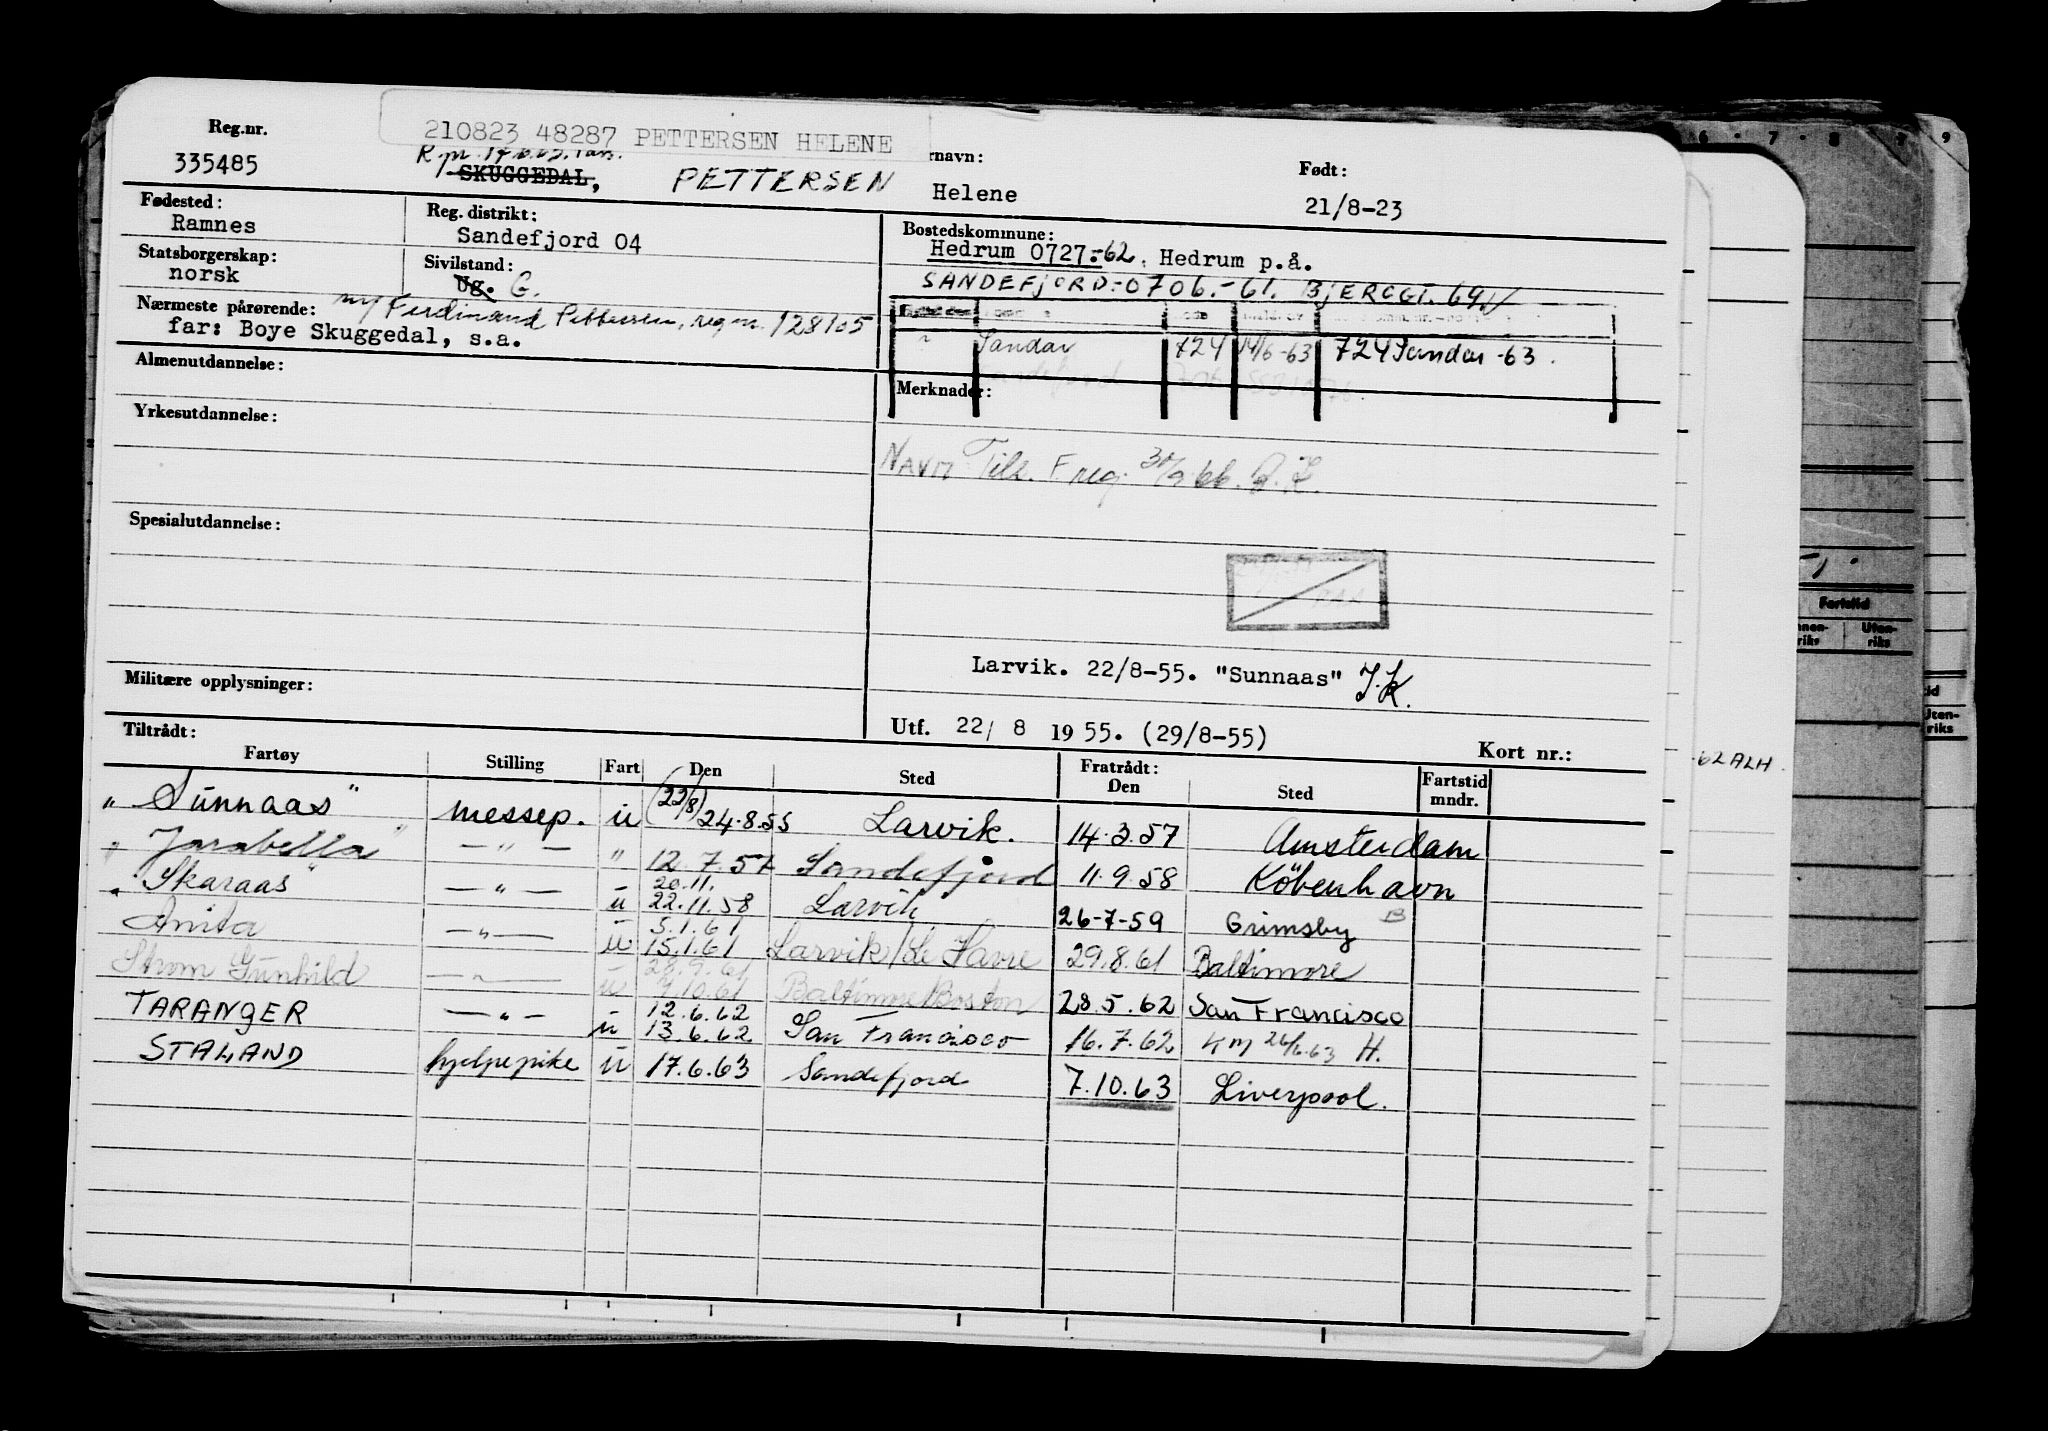 Reg.nr.
335485
210823 48287 PETTERSEN HELENE
SKUGGEDAL, PETTERSEN
rnavn:
Helene
Født:
21/8-23
Fødested:
Ramnes
Reg. distrikt:
Sandefjord 04
Bostedskommune:
Hedrum 0727:-62, Hedrum p.å.
SANDEFJORD:-0706.-61. BJERGGT. 69
Statsborgerskap:
norsk
Sivilstand:
Ug. G.
Nærmeste pårørende: m/ Ferdinand Pettersen, reg nr. 128105
far: Boye Skuggedal, s.a.
Sandar 724 14/6-63 724 Sandar -63.
Almenutdannelse:
Merknader:
Yrkesutdannelse:
Navn Tils. F reg. 30/9 66.
Spesialutdannelse:
Larvik. 22/8-55. "Sunnaas" J.K.
Militære opplysninger:
Utf. 22/ 8 1955. (29/8-55)
Kort nr.:
Tiltrådt:
Fartøy Stilling Fart Den Sted Fratrådt: Den Sted Fartstid mndr.
"Sunnaas" messep. u (22/8) 24.8.55 Larvik. 14.3.57 Amsterdam
"Jarabella" — " — " 12.7.57 Sandefjord 11.9.58 Köbenhavn
"Skaraas" — " — u 20.11. 22.11.58 Larvik 26-7-59 Grimsby
Anita — " — u 5.1.61 15.1.61 Larvik/Le Havre 29.8.61 Baltimore
Strom Gunhild — " — u 28.9.61 9.10.61 Baltimore/Boston 28.5.62 San Francisco
TARANGER — " — u 12.6.62 13.6.62 San Francisco 16.7.62 Km 26/6.63 H.
STALAND hjelpepike u 17.6.63 Sandefjord 7.10.63 Liverpool.
6 7 8 9
Fartstid
Uten-
riks
62 ALH